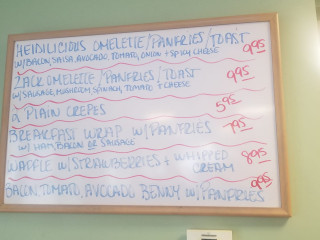 HEIDILICIOUS OMELETTE/PANFRIES/TOAST
W/BACON, SALSA, AVOCADO, TOMATO, ONION + SPICY CHEESE 9.95
ZACK OMELETTE/PANFRIES/TOAST 9.95
W/ SAUSAGE, MUSHROOM, SPINACH, TOMATO + CHEESE
2 PLAIN CREPES 5.95
BREAKFAST WRAP W/PANFRIES 7.95
W/ HAM, BACON OR SAUSAGE
WAFFLE W/STRAWBERRIES + WHIPPED CREAM 8.95
9.95
BACON, TOMATO, AVOCADO BENNY W/PANFRIES